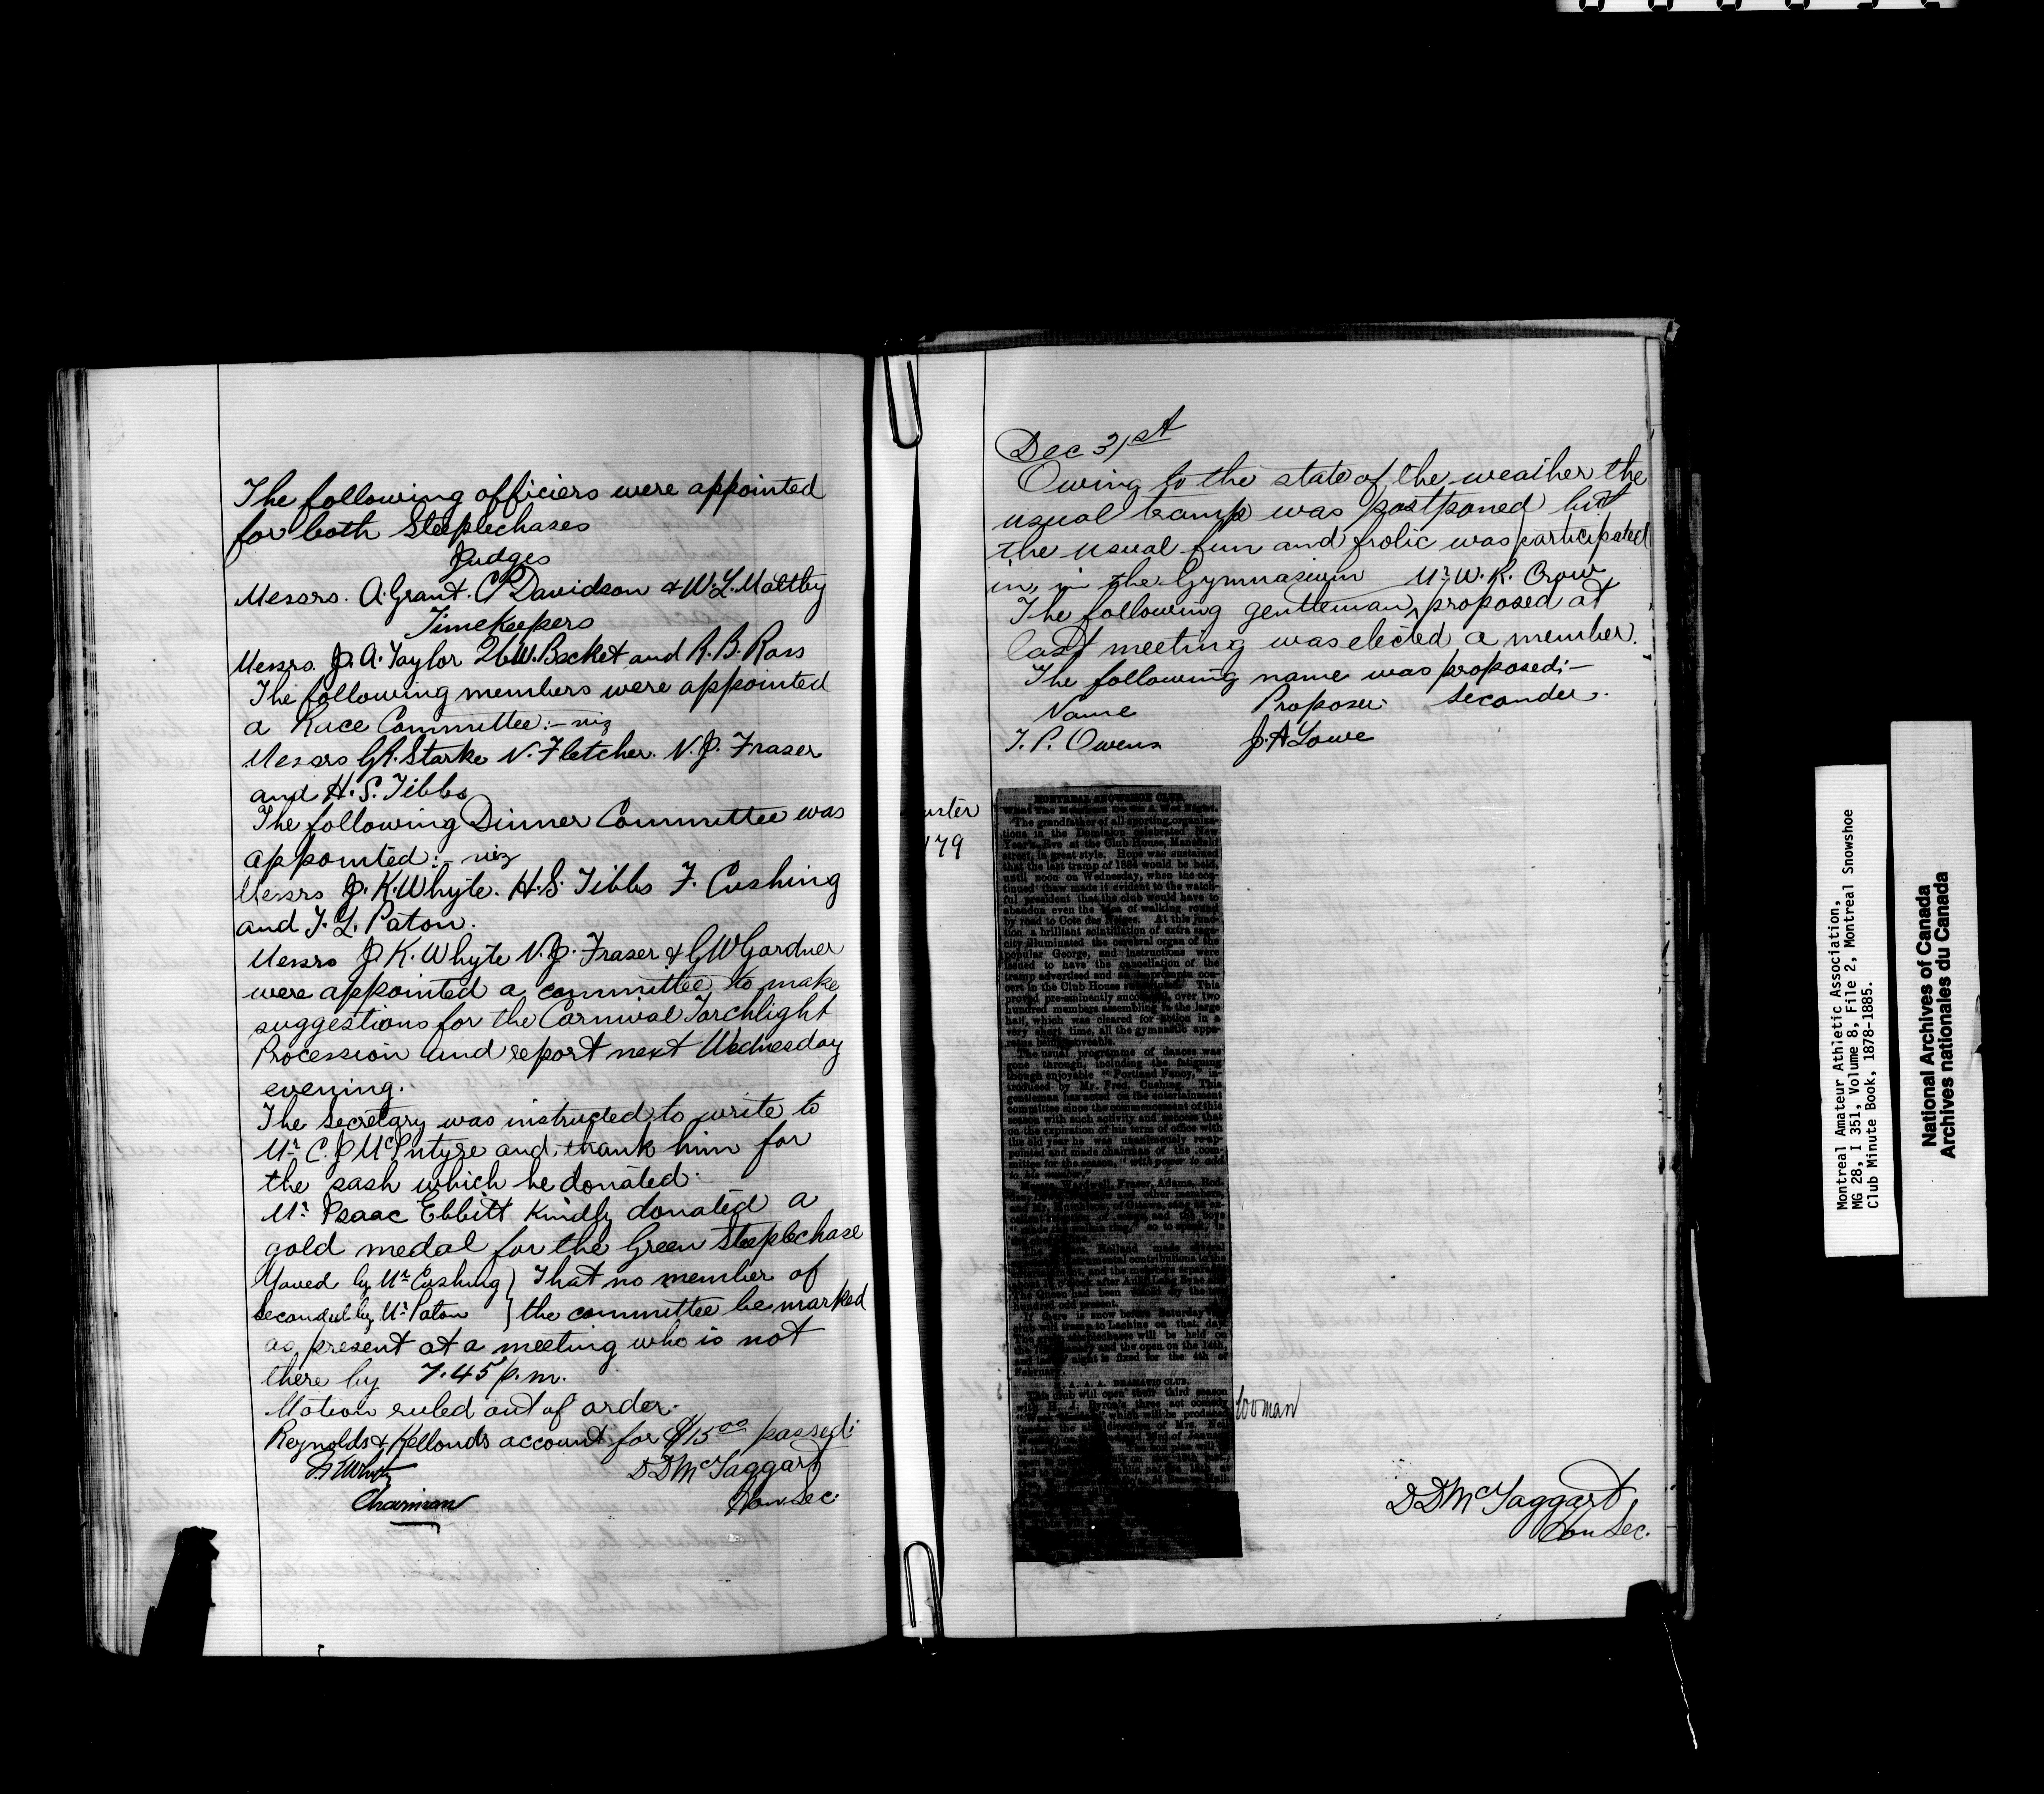 The following officiers were appointed
for both Steeplechases
Judges
Messrs. A. Grant. C P Davidson & W. L. Maltby
Timekeepers
Messrs. J. A. Taylor W. Becket and R. B. Ross
The following members were appointed
a Race Committee:- viz
Messrs G R. Starke N. Fletcher. N. J. Fraser
and H. S. Tibbs
The following Dinner Committee was
appointed:- viz
Messrs J. K. Whyte. H. S. Tibbs F. Cushing
and T. L. Paton.
Messrs J. K. Whyte N. J. Fraser & G W Gardner
were appointed a committee to make
suggestions for the Carnival Torchlight
Procession and report next Wednesday
evening.
The secretary was instructed to write to
Mr C. J McIntyre and thank him for
the sash which he donated.
Mr Isaac Ebbitt kindly donated a
gold medal for the Green Steeplechase
Moved by Mr Cushing } That no member of
seconded by Mr Paton } the committee be marked
as present at a meeting who is not
there by 7.45 p.m.
Motion ruled out of order.
Reynolds & Kellonds account for $15.00 passed.
Chairman
D D McTaggart
Hon Sec.
Dec 31st
Owing to the state of the weather the
usual tramp was postponed but
the usual fun and frolic was participated
in, in the Gymnasium Mr W. K. Crow
The following gentleman, proposed at
last meeting was elected a member.
The following name was proposed:-
Name Proposer Seconder.
T. P. Owens J. A Lowe
MONTREAL SNOWSHOE CLUB.
The grandfather of all sporting organiza-
tions in the Dominion celebrated New
Year's Eve at the Club House, Mansfield
street, in great style. Hope was sustained
that the last tramp of 1884 would be held,
until noon on Wednesday, when the con-
tinued thaw made it evident to the watch-
ful president that the club would have to
abandon even the idea of walking round
by road to Cote des Neiges. At this junc-
tion a brilliant scintillation of extra saga-
city illuminated the cerebral organ of the
popular George, and instructions were
issued to have the cancellation of the
tramp advertised and an impromptu con-
cert in the Club House This
proved pre-eminently successful, over two
hundred members assembling in the large
hall, which was cleared for action in a
very short time, all the gymnasium appa-
ratus being moveable.
The usual programme of dances was
gone through, including the fatiguing
though enjoyable "Portland Fancy," in-
troduced by Mr. Fred. Cushing. This
gentleman has acted on the entertainment
committee since the commencement of this
season with such activity and success that
on the expiration of his term of office with
the old year he was unanimously re-ap-
pointed and made chairman of the com-
mittee for the season, "with power to add
to his number."
Wardwell, Fraser, Adams,
and other members,
and Mr. Hutchison, of Ottawa,
Holland made
instrumental contributions
after
the Queen had been
hundred odd present.
If there is snow before Saturday
club will tramp to Lachine on that day.
The green steeplechases will be held on
and the open on the
night is fixed for the 4th of
February.
M. A. A. A. DRAMATIC CLUB.
This club will open their third season
with H. J. Byron's three act comedy
which will be produced
direction of Mrs.
tooman
D D McTaggart
Hon Sec.
Montreal Amateur Athletic Association,
MG 28, I 351, Volume 8, File 2, Montreal Snowshoe
Club Minute Book, 1878-1885.
National Archives of Canada
Archives nationales du Canada